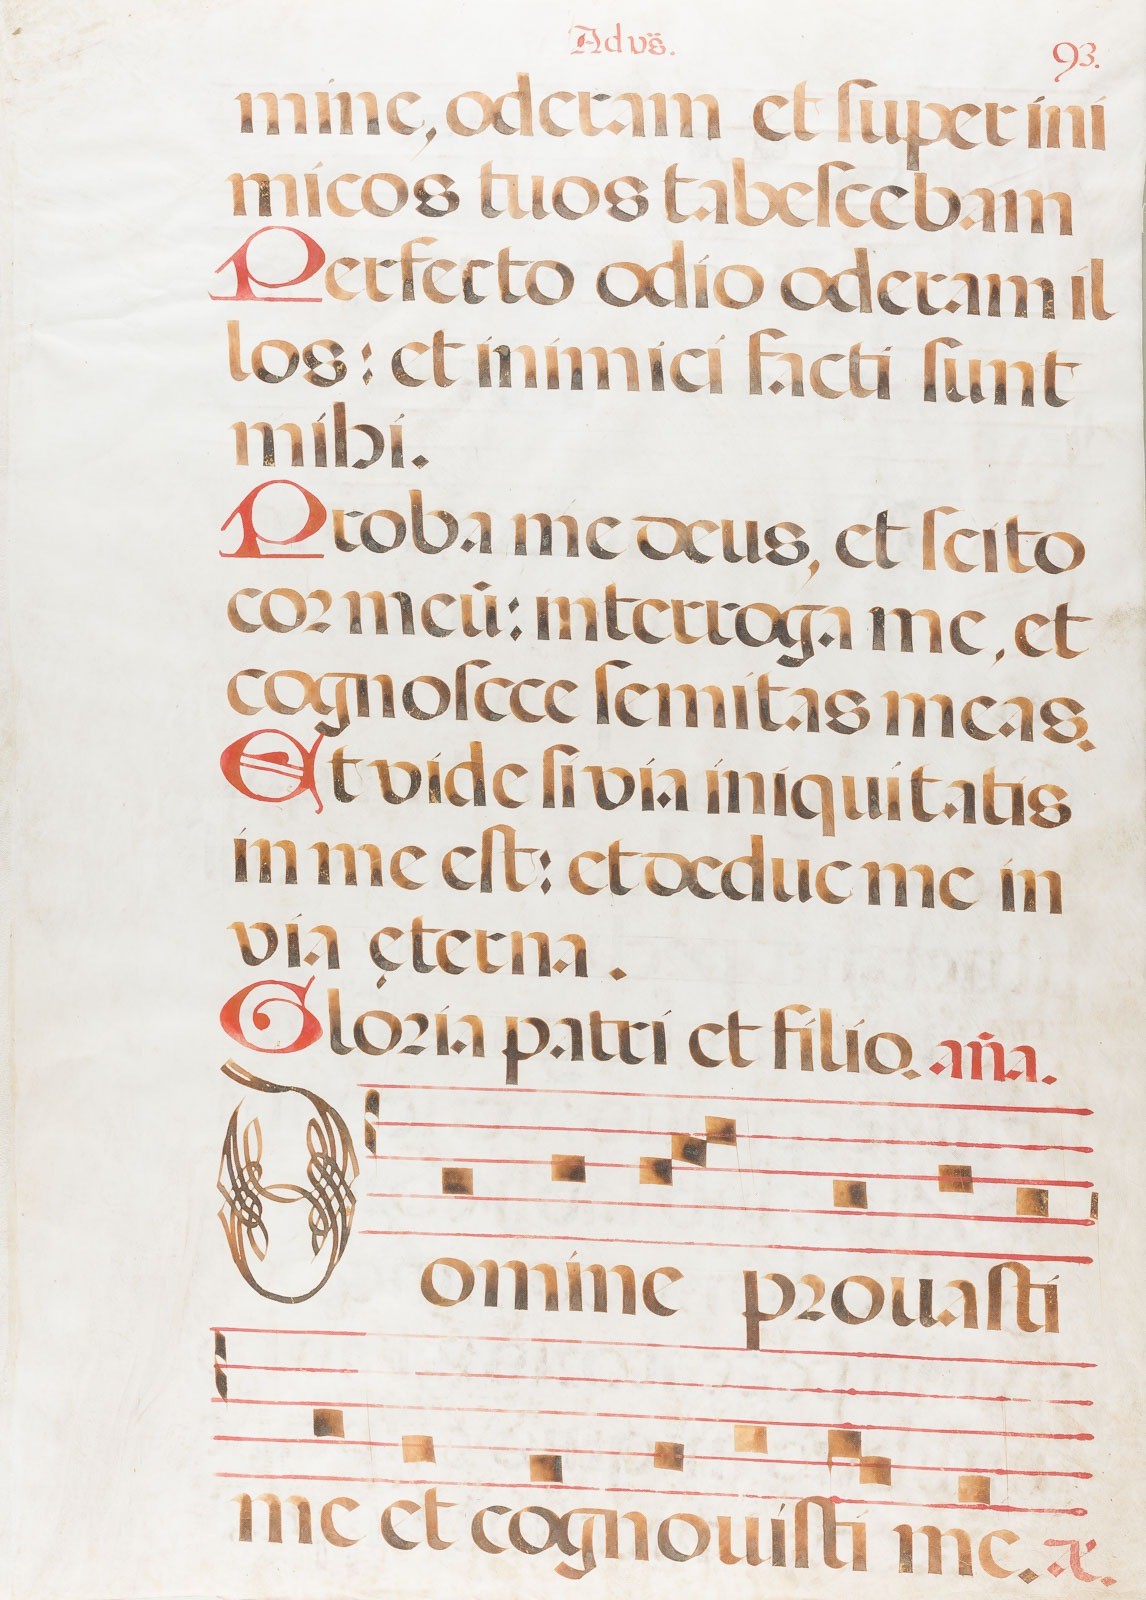 Advs̃.
93.
mine, oderam et super ini
micos tuos tabescebam
Perfecto odio oderam il
los: et inimici facti sunt
mihi.
Proba me deus, et scito
cor meū: interroga me, et
cognosce semitas meas.
Et vide si via iniquitatis
in me est: et deduc me in
via ęterna.
Gloria patri et filio. aña.
Domine prouasti
me et cognouisti me.